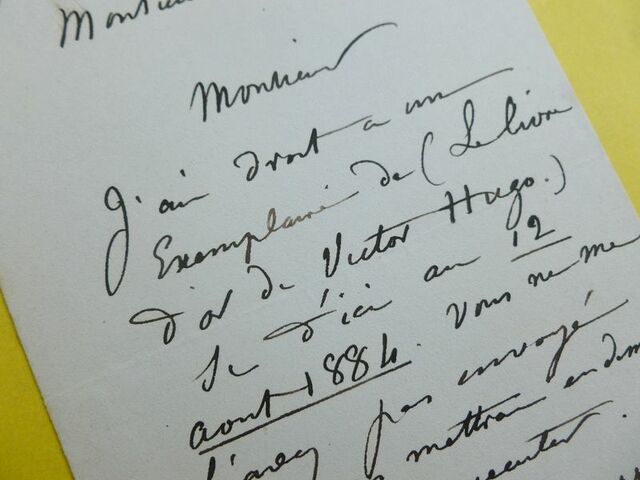 Monsieur
Monsieur
J'ai droit a un
Exemplaire de (Le livre
d'or de Victor Hugo.)
Si d'ici au 12
aout 1884. Vous ne me
l'avez pas envoyé
mettrai en dem